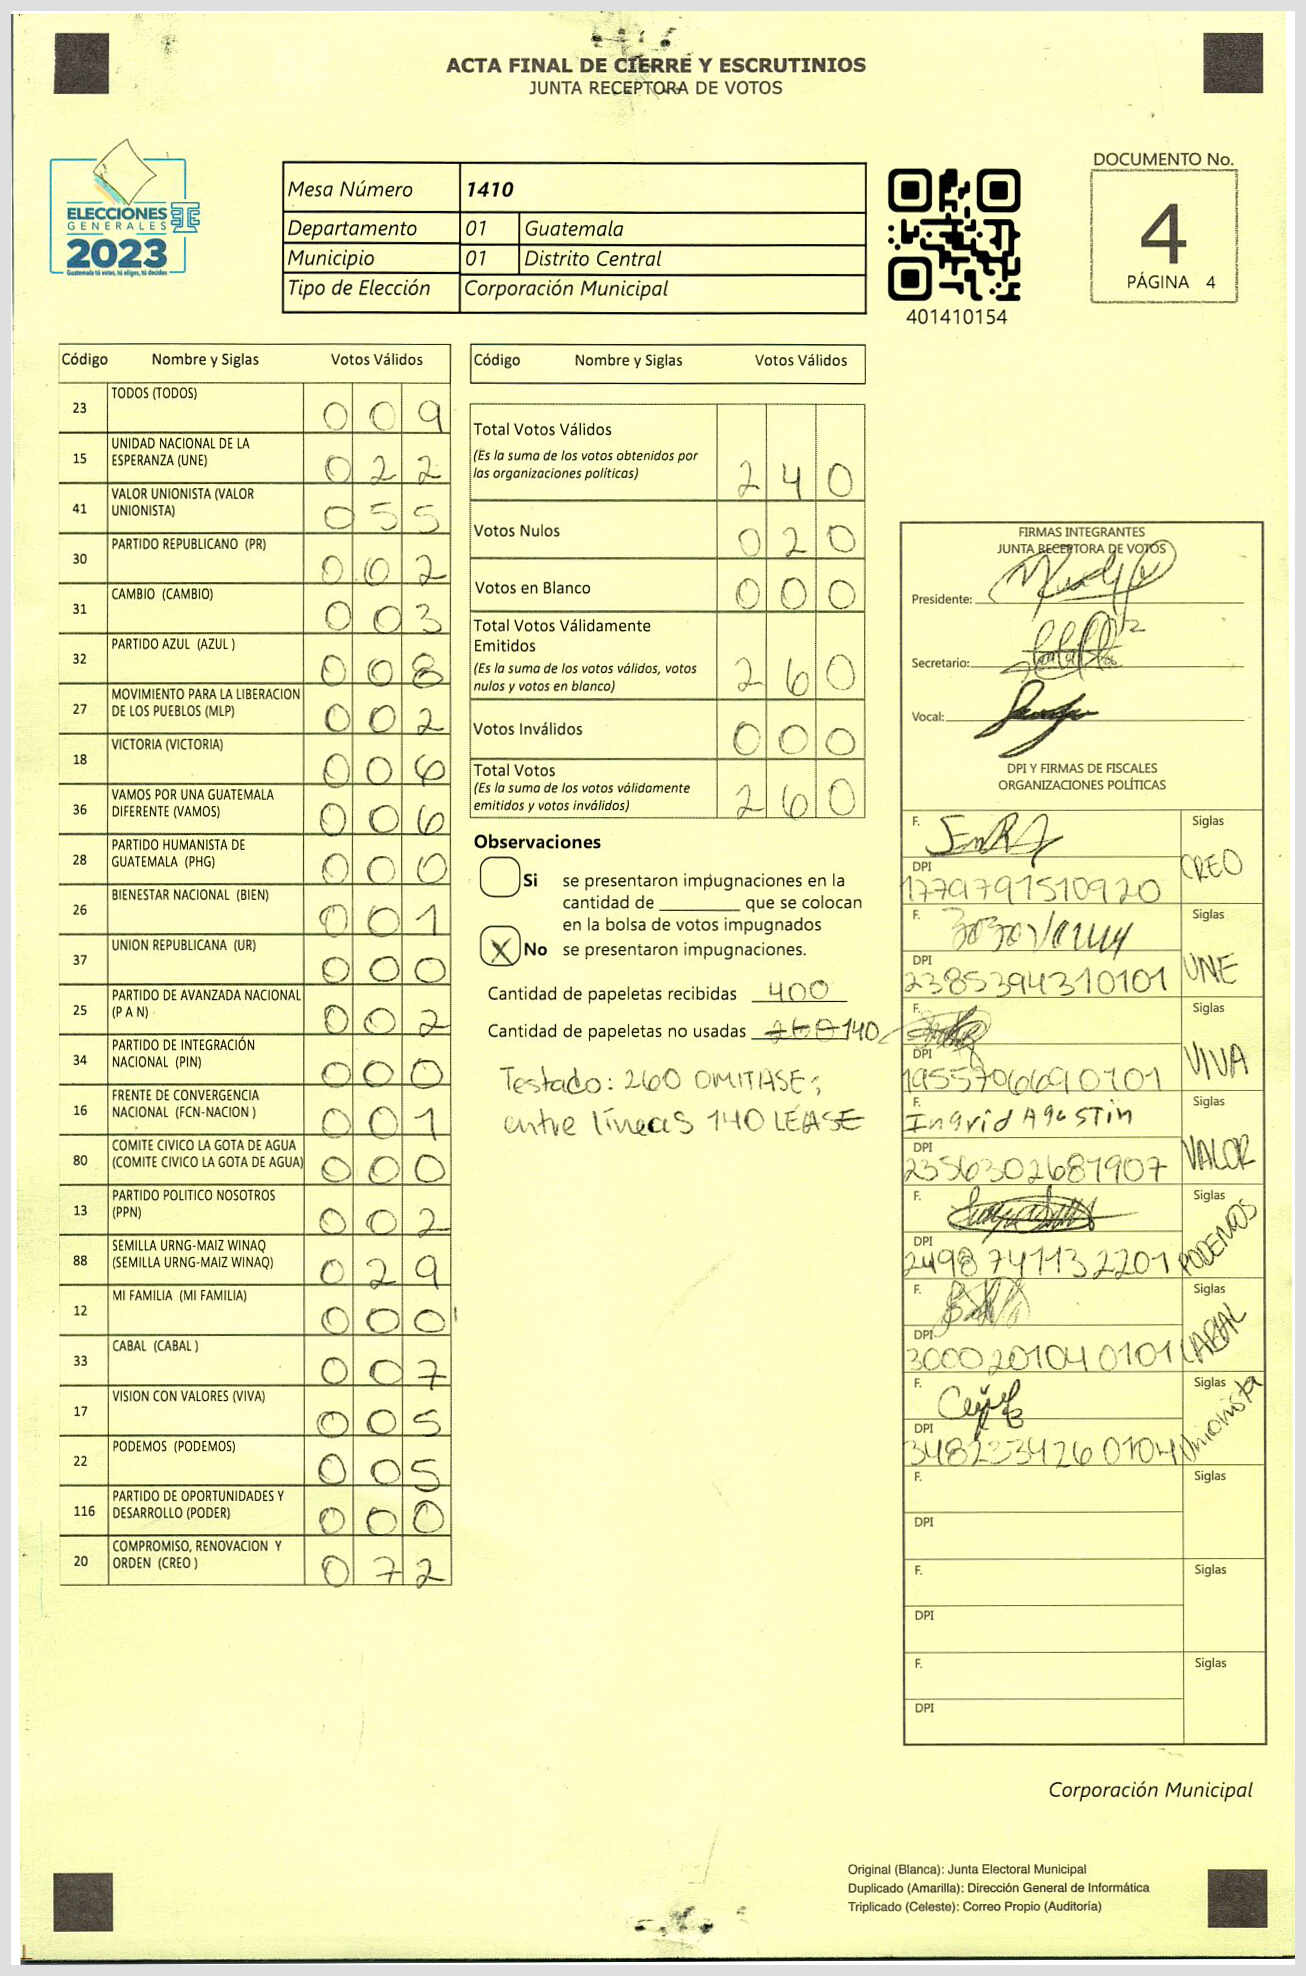 ACTA FINAL DE CIERRE Y ESCRUTINIOS
JUNTA RECEPTORA DE VOTOS
ELECCIONES
GENERALES
2023
Guatemala tú votas, tú eliges, tú decides
Mesa Número 1410
Departamento 01 Guatemala
Municipio 01 Distrito Central
Tipo de Elección Corporación Municipal
401410154
DOCUMENTO No.
4
PÁGINA 4
Código Nombre y Siglas Votos Válidos
23 TODOS (TODOS) 0 0 9
15 UNIDAD NACIONAL DE LA
ESPERANZA (UNE) 0 2 2
41 VALOR UNIONISTA (VALOR
UNIONISTA) 0 5 5
30 PARTIDO REPUBLICANO (PR) 0 0 2
31 CAMBIO (CAMBIO) 0 0 3
32 PARTIDO AZUL (AZUL ) 0 0 8
27 MOVIMIENTO PARA LA LIBERACION
DE LOS PUEBLOS (MLP) 0 0 2
18 VICTORIA (VICTORIA) 0 0 6
36 VAMOS POR UNA GUATEMALA
DIFERENTE (VAMOS) 0 0 6
28 PARTIDO HUMANISTA DE
GUATEMALA (PHG) 0 0 0
26 BIENESTAR NACIONAL (BIEN) 0 0 1
37 UNION REPUBLICANA (UR) 0 0 0
25 PARTIDO DE AVANZADA NACIONAL
(P A N) 0 0 2
34 PARTIDO DE INTEGRACIÓN
NACIONAL (PIN) 0 0 0
16 FRENTE DE CONVERGENCIA
NACIONAL (FCN-NACION ) 0 0 1
80 COMITE CIVICO LA GOTA DE AGUA
(COMITE CIVICO LA GOTA DE AGUA) 0 0 0
13 PARTIDO POLITICO NOSOTROS
(PPN) 0 0 2
88 SEMILLA URNG-MAIZ WINAQ
(SEMILLA URNG-MAIZ WINAQ) 0 2 9
12 MI FAMILIA (MI FAMILIA) 0 0 0
33 CABAL (CABAL ) 0 0 7
17 VISION CON VALORES (VIVA) 0 0 5
22 PODEMOS (PODEMOS) 0 0 5
116 PARTIDO DE OPORTUNIDADES Y
DESARROLLO (PODER) 0 0 0
20 COMPROMISO, RENOVACION Y
ORDEN (CREO ) 0 7 2
Código Nombre y Siglas Votos Válidos
Total Votos Válidos
(Es la suma de los votos obtenidos por
las organizaciones políticas) 2 4 0
Votos Nulos 0 2 0
Votos en Blanco 0 0 0
Total Votos Válidamente
Emitidos
(Es la suma de los votos válidos, votos
nulos y votos en blanco) 2 6 0
Votos Inválidos 0 0 0
Total Votos
(Es la suma de los votos válidamente
emitidos y votos inválidos) 2 6 0
Observaciones
Si se presentaron impugnaciones en la
cantidad de ________ que se colocan
en la bolsa de votos impugnados
X No se presentaron impugnaciones.
Cantidad de papeletas recibidas 400
Cantidad de papeletas no usadas 260 140
Testado: 260 OMITASE;
entre líneas 140 LEASE
FIRMAS INTEGRANTES
JUNTA RECEPTORA DE VOTOS
Presidente:
Secretario:
Vocal:
DPI Y FIRMAS DE FISCALES
ORGANIZACIONES POLÍTICAS
F. Siglas
CREO
DPI
1779791510920
F. Siglas
UNE
DPI
2385394310101
F. Siglas
VIVA
DPI
1955706690101
F. Siglas
Ingrid Agustin
VALOR
DPI
2356302681907
F. Siglas
PODEMOS
DPI
2498741132201
F. Siglas
CABAL
DPI
3000201040101
F. Siglas
Unionista
DPI
3482334260104
F. Siglas
DPI
F. Siglas
DPI
F. Siglas
DPI
Corporación Municipal
Original (Blanca): Junta Electoral Municipal
Duplicado (Amarilla): Dirección General de Informática
Triplicado (Celeste): Correo Propio (Auditoría)